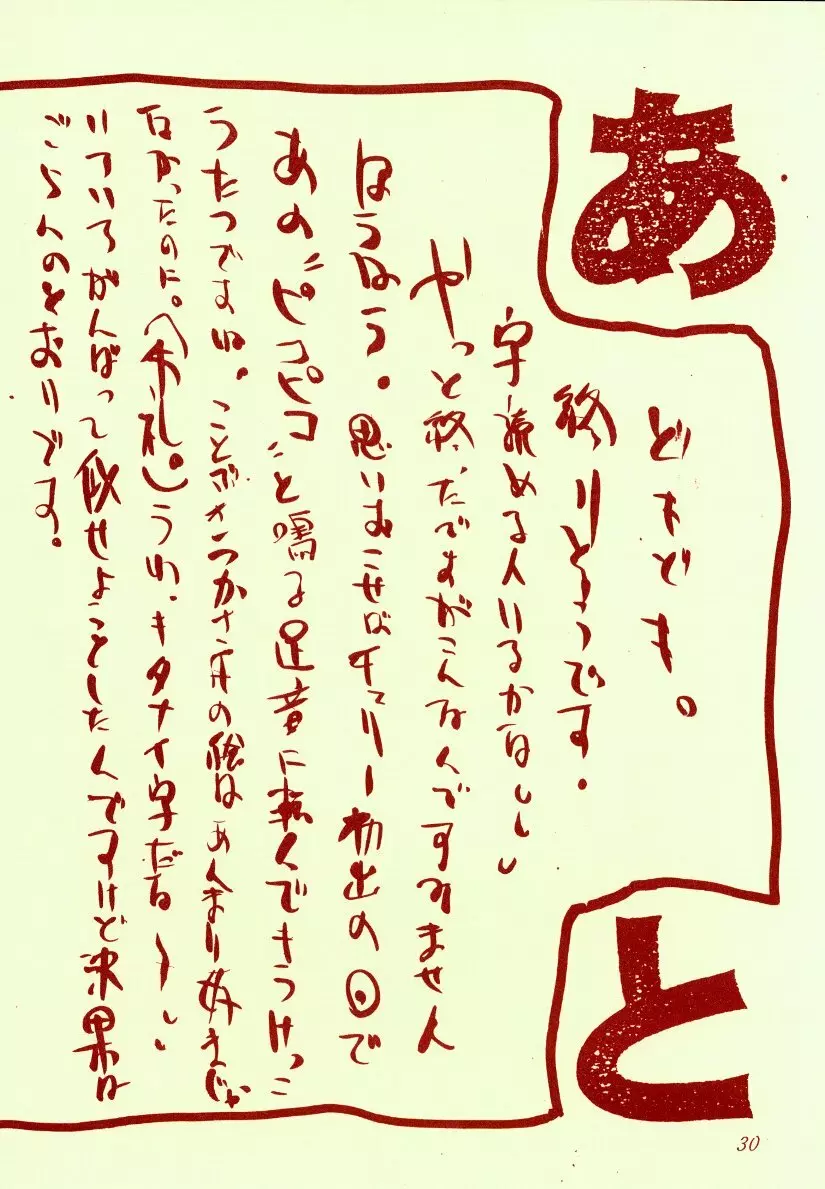 あと
どもども。
終りどうです。
字読める人いるかなししし
やっと終ったですがこんなんですみません
ほうほう。思いおこせばチェリー初出の回で
あの〝ピコピコ〟と鳴る足音に転んでもうけっこ
うたつですね。ことぶきつかさ の絵はあんまり好きじゃ
なかったのに。(失礼。)うわ、キタナイ字だな〜しし
いろいろがんばって似せよことしたんですけど結果は
ごらんのとおりです。
30